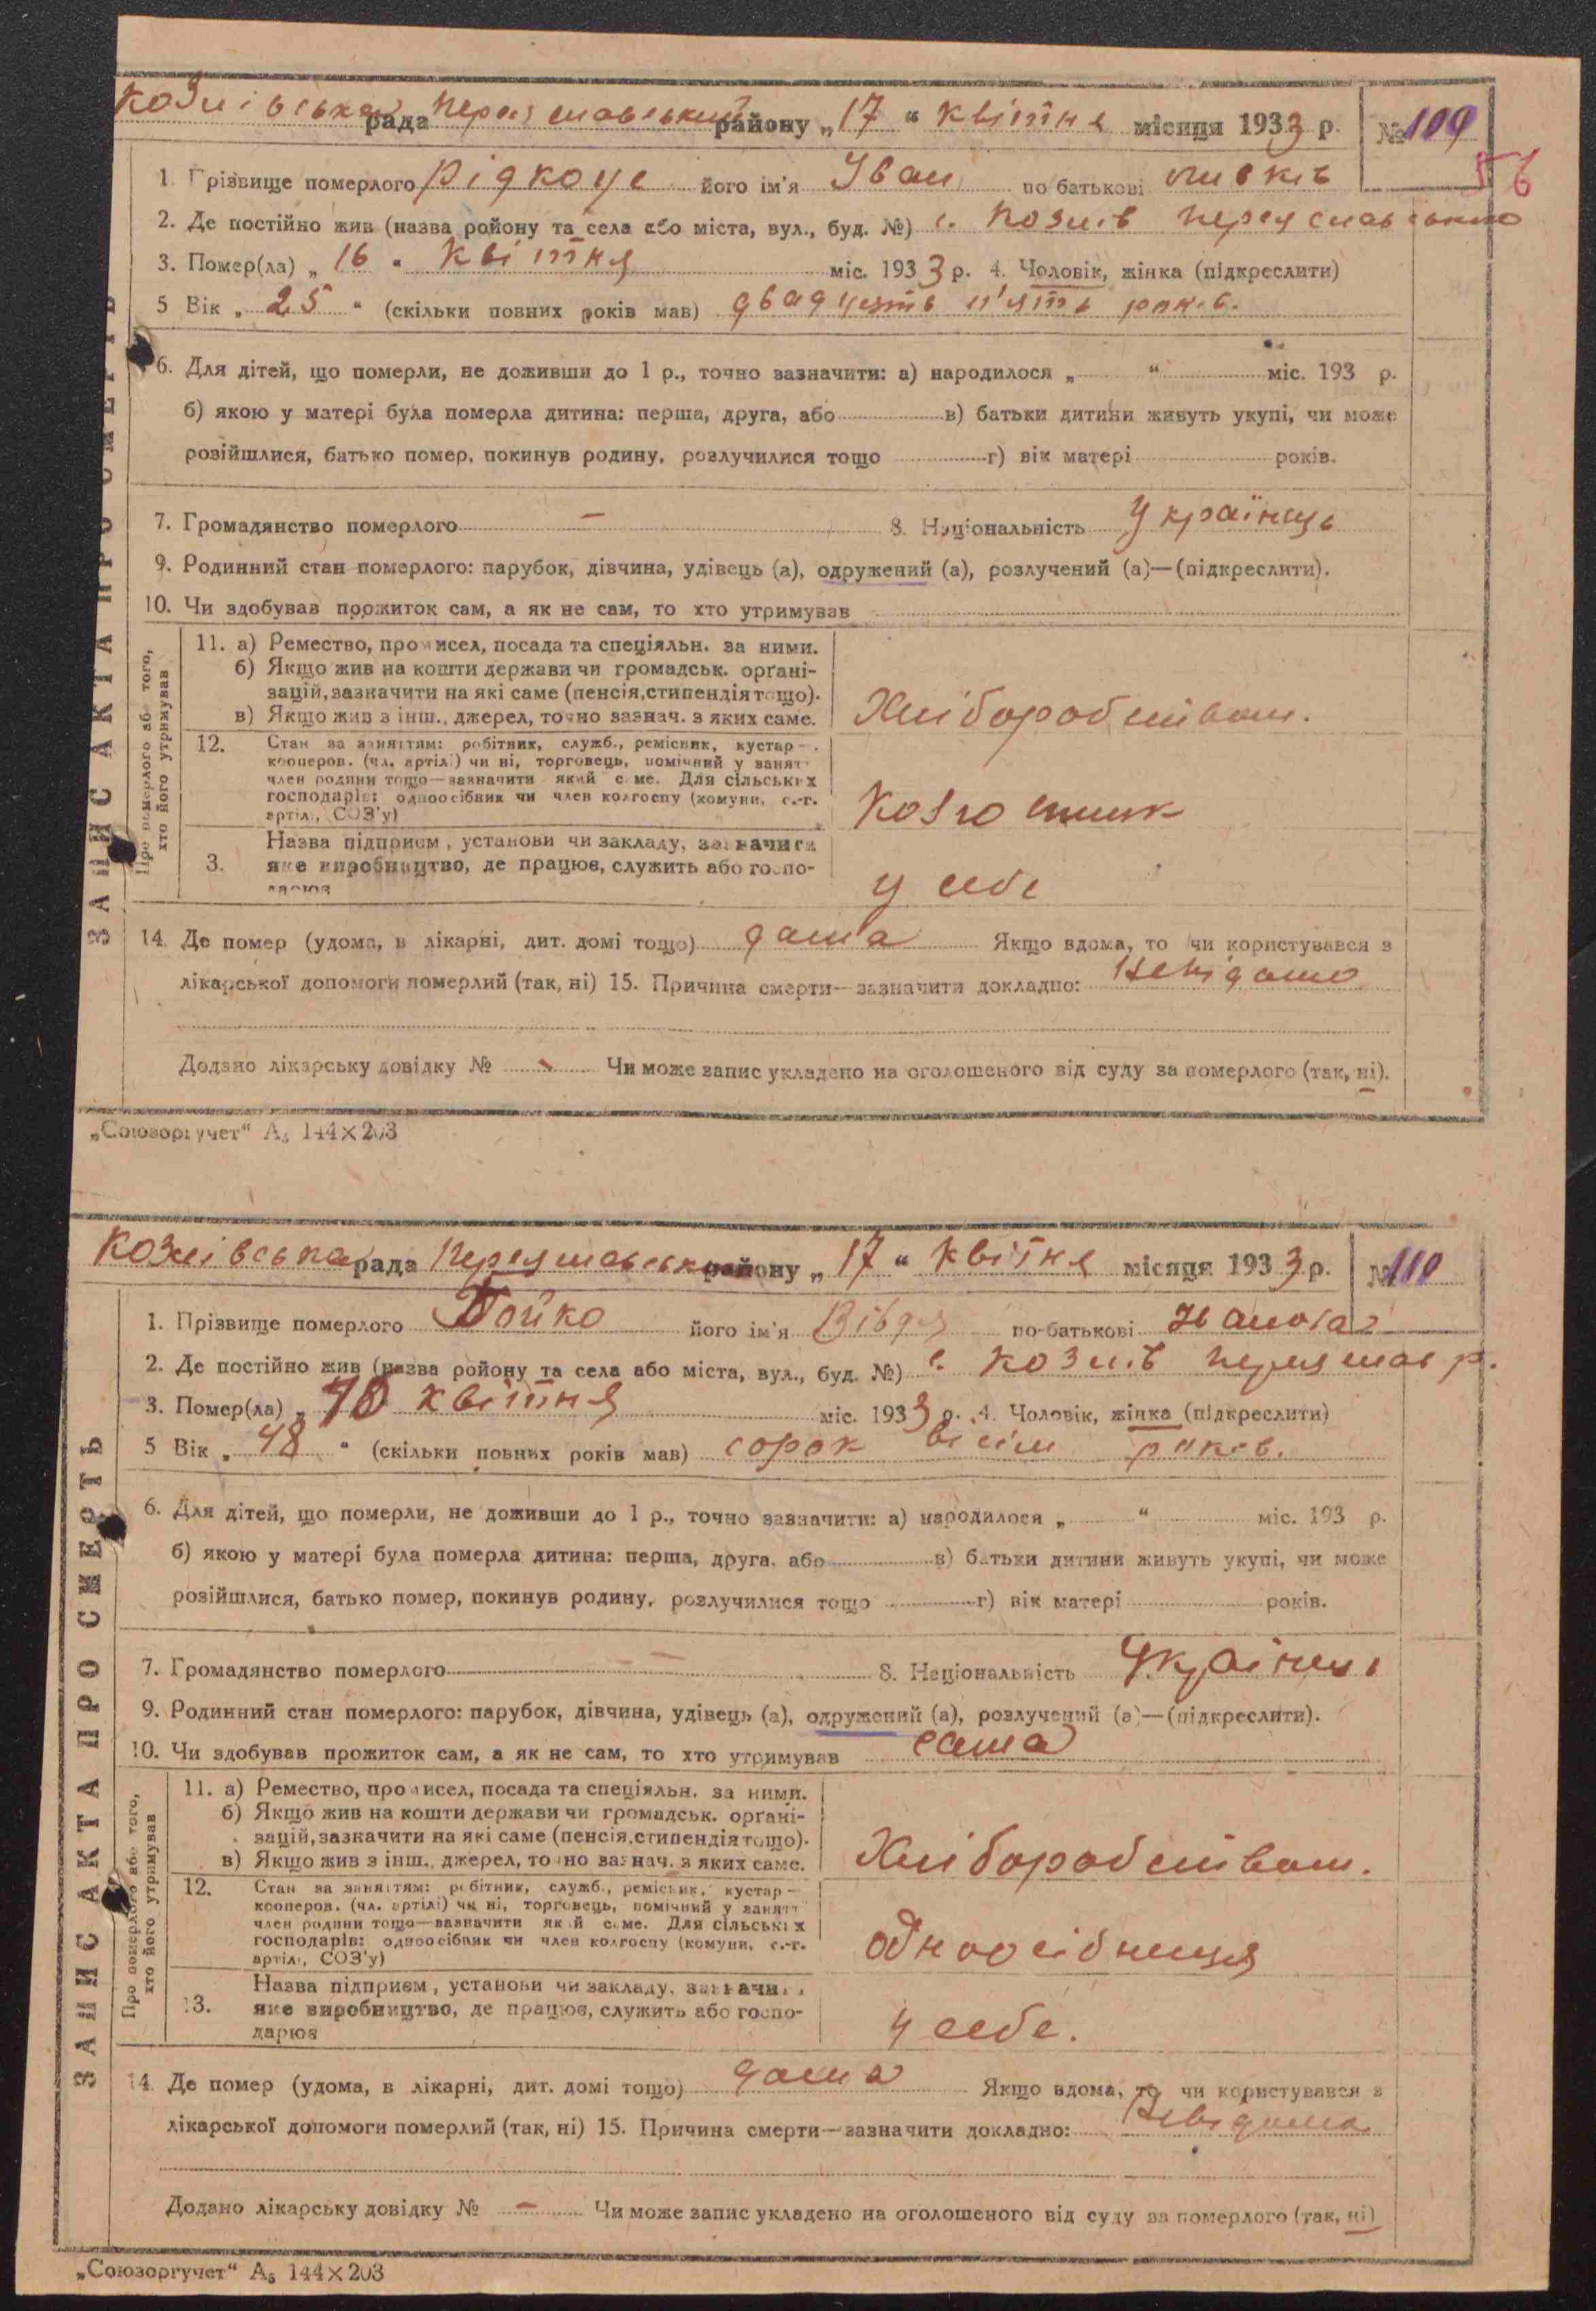 Козлівська рада Переяславський району „ 17 “ квітня місяця 1933 р. № 109
56
1. Прізвище померлого Рідкоус його ім'я Іван по батькові
2. Де постійно жив (назва ройону та села або міста, вул., буд. №) с. Козлів Переяславського
3. Помер(ла) „ 16 “ квітня міс. 1933 р. 4. Чоловік, жінка (підкреслити)
5 Вік „ 25 “ (скільки повних років мав) двадцять п'ять років.
6. Для дітей, що померли, не доживши до 1 р., точно зазначити: а) народилося „ “ міс. 193 р.
б) якою у матері була померла дитина: перша, друга, або в) батьки дитини живуть укупі, чи може
розійшлися, батько помер, покинув родину, розлучилися тощо г) вік матері років.
7. Громадянство померлого — 8. Національність Українець
9. Родинний стан померлого: парубок, дівчина, удівець (а), одружений (а), розлучений (а)—(підкреслити).
10. Чи здобував прожиток сам, а як не сам, то хто утримував
Про померлого або того, хто його утримував
11. а) Ремество, промисел, посада та спеціяльн. за ними.
б) Якщо жив на кошти держави чи громадськ. орґані-
зацій, зазначити на які саме (пенсія, стипендія тощо).
в) Якщо жив з інш., джерел, точно зазнач. з яких саме.
Хліборобством.
12. Стан за заняттям: робітник, служб., ремісник, кустар —
кооперов. (чл. артілі) чи ні, торговець, помічний у занятт
член родини тощо—зазначити який саме. Для сільських
господарів: одноосібник чи член колгоспу (комуни, с.-г.
артілі, СОЗ'у)
Колгоспник
Назва підприєм, установи чи закладу, зазначити
3. яке виробництво, де працює, служить або госпо-
дарює
у себе
14. Де помер (удома, в лікарні, дит. домі тощо) дома Якщо вдома, то чи користувався з
лікарської допомоги померлий (так, ні) 15. Причина смерти—зазначити докладно: Невідомо
Додано лікарську довідку № — Чи може запис укладено на оголошеного від суду за померлого (так, ні).
ЗАПИС АКТА ПРО СМЕРТЬ
„Союзоргучет“ А₅ 144×203
Козлівська рада Переяславського району „ 17 “ квітня місяця 1933 р. № 110
1. Прізвище померлого Бойко його ім'я Вівдя по-батькові
2. Де постійно жив (назва ройону та села або міста, вул., буд. №) с. Козлів Переяслав р.
3. Помер(ла) „ квітня міс. 1933 р. 4. Чоловік, жінка (підкреслити)
5 Вік „ 48 “ (скільки повних років мав) сорок вісім років.
6. Для дітей, що померли, не доживши до 1 р., точно зазначити: а) народилося „ “ міс. 193 р.
б) якою у матері була померла дитина: перша, друга, або в) батьки дитини живуть укупі, чи може
розійшлися, батько помер, покинув родину, розлучилися тощо г) вік матері років.
7. Громадянство померлого — 8. Національність Українець
9. Родинний стан померлого: парубок, дівчина, удівець (а), одружений (а), розлучений (а)—(підкреслити).
10. Чи здобував прожиток сам, а як не сам, то хто утримував сама
Про померлого або того, хто його утримував
11. а) Ремество, промисел, посада та спеціяльн. за ними.
б) Якщо жив на кошти держави чи громадськ. орґані-
зацій, зазначити на які саме (пенсія, стипендія тощо).
в) Якщо жив з інш., джерел, точно зазнач. з яких саме.
Хліборобством.
12. Стан за заняттям: робітник, служб., ремісник, кустар —
кооперов. (чл. артілі) чи ні, торговець, помічний у занятт
член родини тощо—зазначити який саме. Для сільських
господарів: одноосібник чи член колгоспу (комуни, с.-г.
артілі, СОЗ'у)
одноосібниця
Назва підприєм, установи чи закладу, зазначити
13. яке виробництво, де працює, служить або госпо-
дарює
у себе.
14. Де помер (удома, в лікарні, дит. домі тощо) дома Якщо вдома, то чи користувався з
лікарської допомоги померлий (так, ні) 15. Причина смерти—зазначити докладно: Невідома
Додано лікарську довідку № — Чи може запис укладено на оголошеного від суду за померлого (так, ні)
ЗАПИС АКТА ПРО СМЕРТЬ
„Союзоргучет“ А₅ 144×203